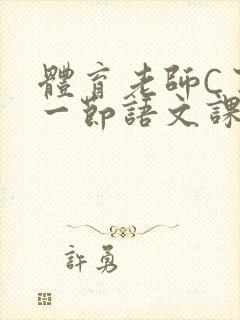 體育老師C
一節語文課
許勇